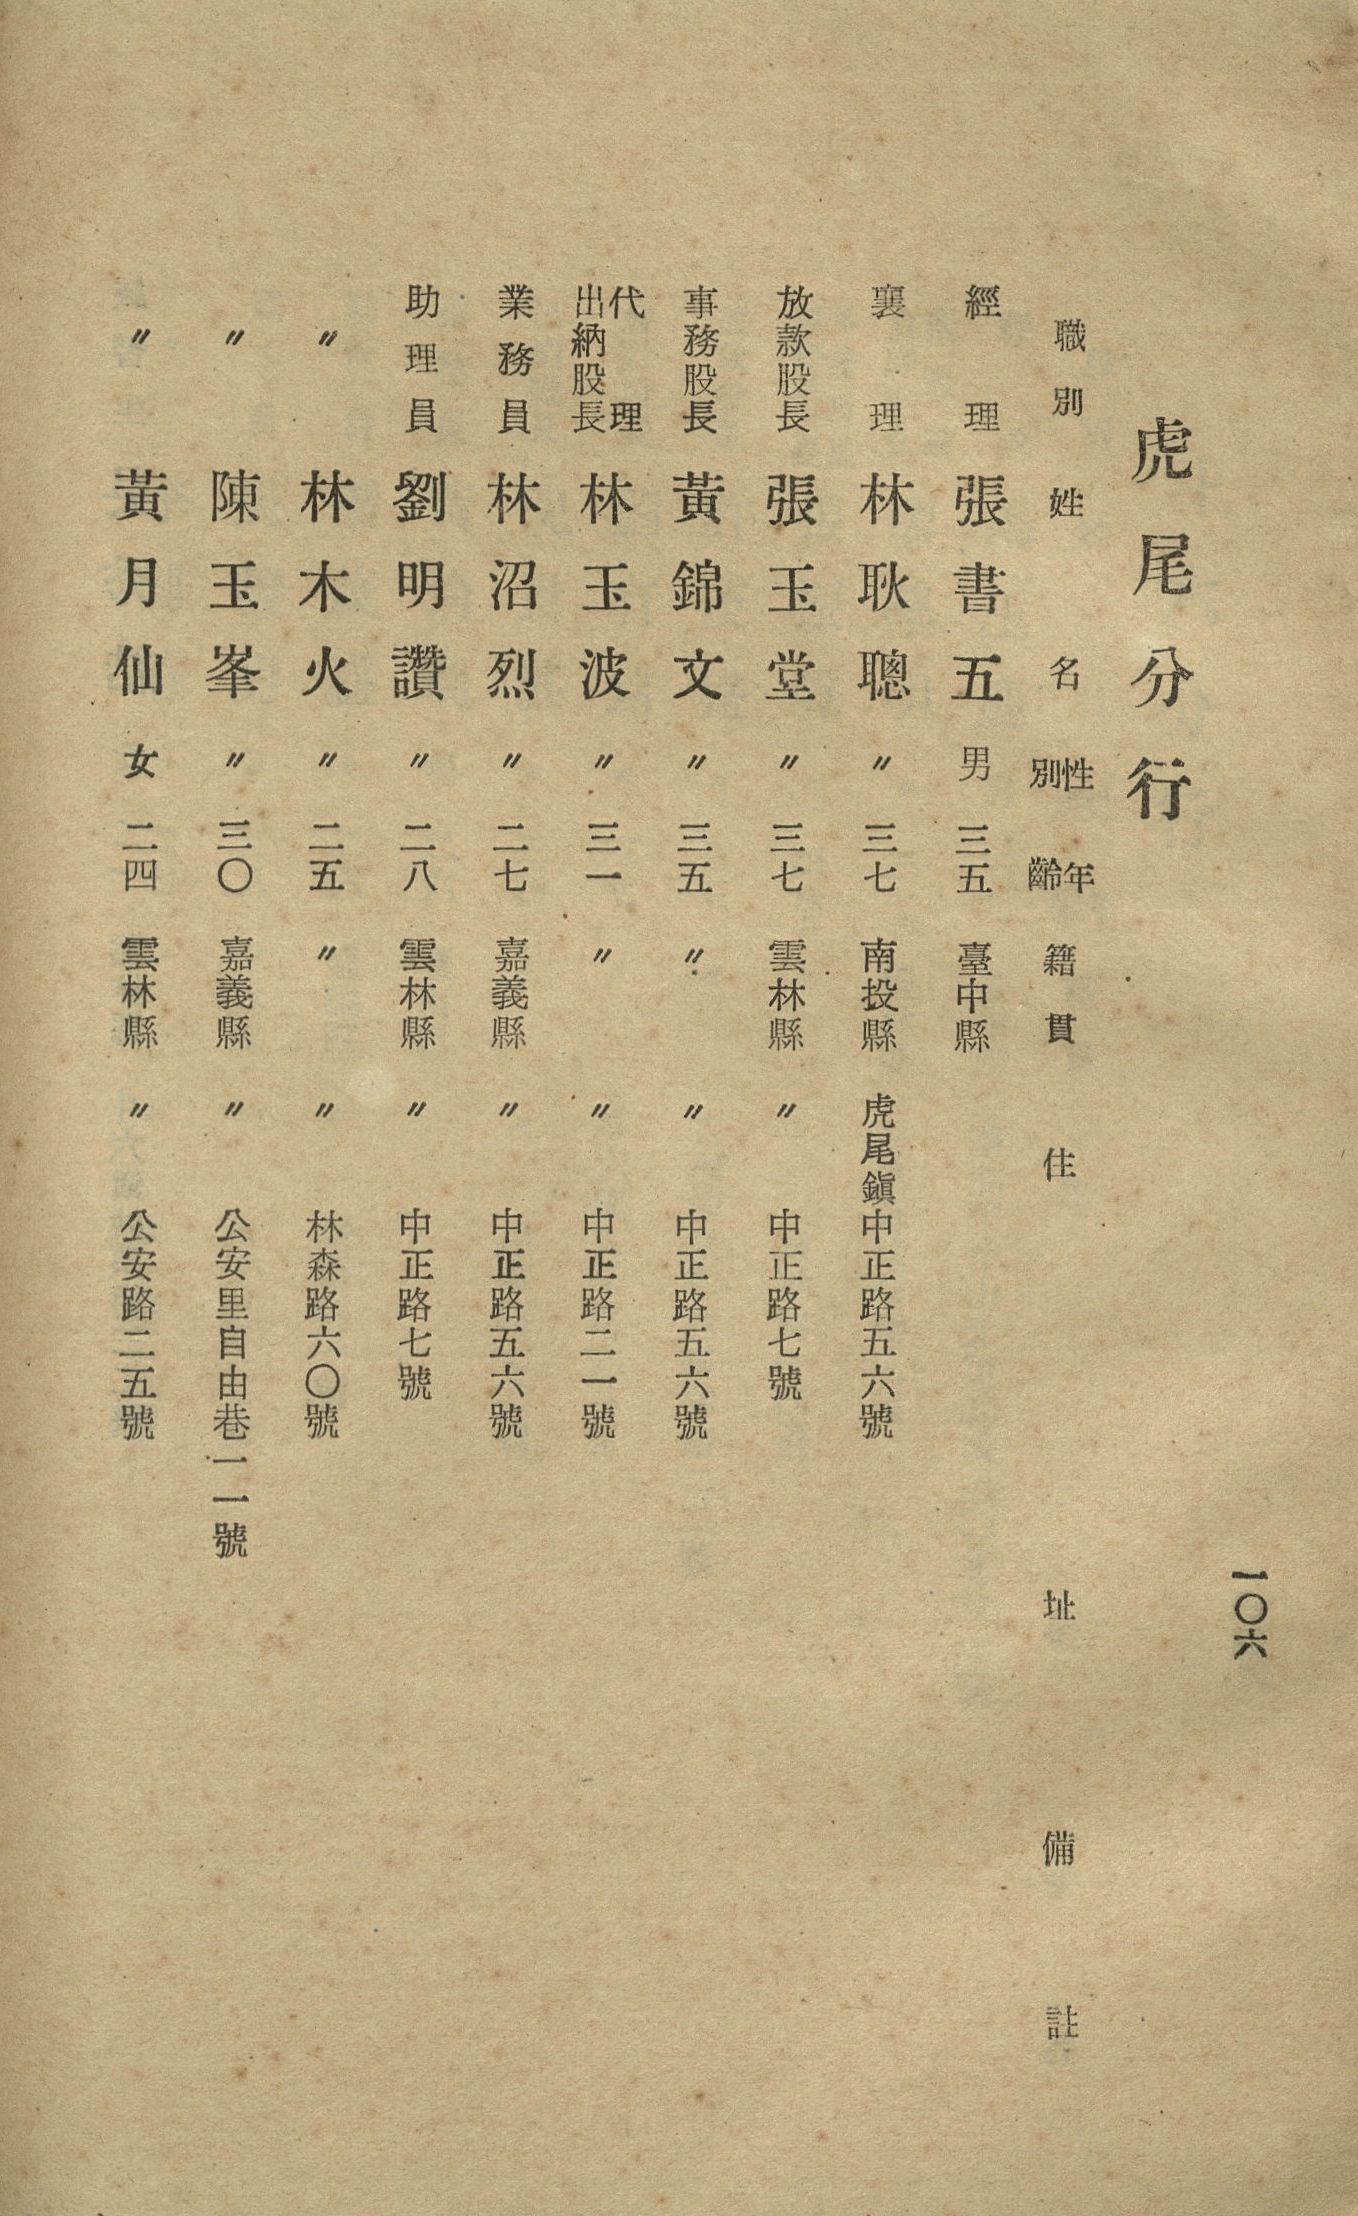 一〇六
虎尾分行
職別 姓名 性別 年齡 籍貫 住址 備註
經理 張書五 男 三五 臺中縣
襄理 林耿聰 〃 三七 南投縣 虎尾鎭中正路五六號
放款股長 張玉堂 〃 三七 雲林縣 〃 中正路七號
事務股長 黃錦文 〃 三五 〃 〃 中正路五六號
代理出納股長 林玉波 〃 三一 〃 〃 中正路二一號
業務員 林沼烈 〃 二七 嘉義縣 〃 中正路五六號
助理員 劉明讚 〃 二八 雲林縣 〃 中正路七號
〃 林木火 〃 二五 〃 〃 林森路六〇號
〃 陳玉峯 〃 三〇 嘉義縣 〃 公安里自由巷一一號
〃 黃月仙 女 二四 雲林縣 〃 公安路二五號